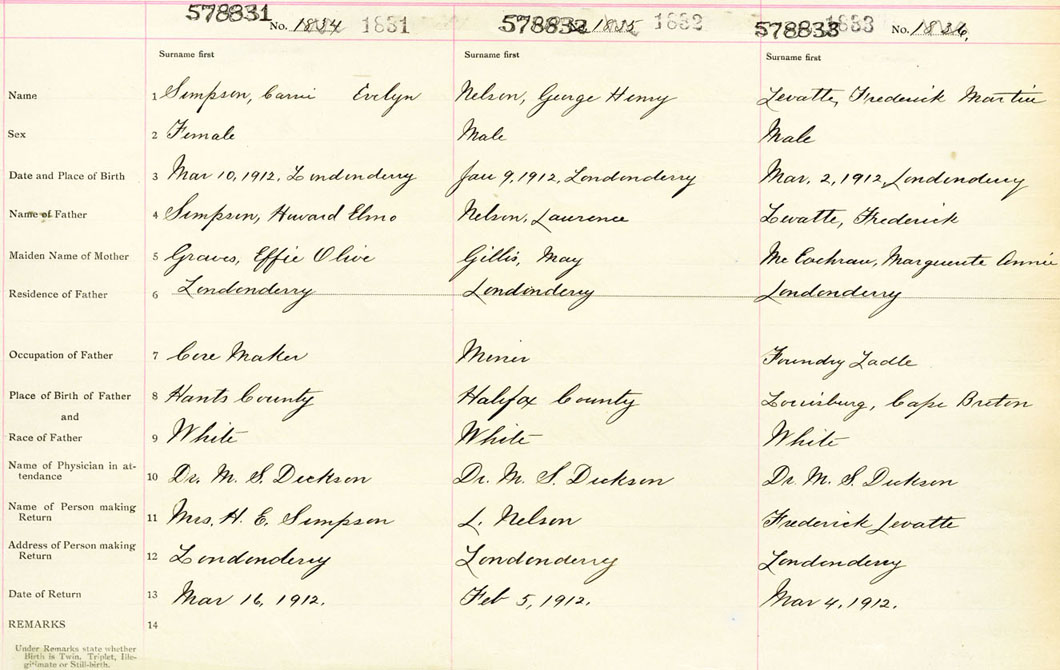 578831 No. 1834 1831 578832 1835 1832 578833 1833 No. 1836
Surname first Surname first Surname first
Name 1 Simpson, Carrie Evelyn Nelson, George Henry Levatte, Frederick Martin
Sex 2 Female Male Male
Date and Place of Birth 3 Mar 10, 1912, Londonderry Jan 9, 1912, Londonderry Mar. 2, 1912, Londonderry
Name of Father 4 Simpson, Howard Elmo Nelson, Laurence Levatte, Frederick
Maiden Name of Mother 5 Graves, Effie Olive Gillis, May Mc Eachran, Marguerite Annie
Residence of Father 6 Londonderry Londonderry Londonderry
Occupation of Father 7 Core Maker Miner Foundry Ladle
Place of Birth of Father 8 Hants County Halifax County Louisburg, Cape Breton
and
Race of Father 9 White White White
Name of Physician in at-
tendance 10 Dr. M. S. Dickson Dr. M. S. Dickson Dr M. S. Dickson
Name of Person making
Return 11 Mrs. H. E. Simpson L. Nelson Frederick Levatte
Address of Person making
Return 12 Londonderry Londonderry Londonderry
Date of Return 13 Mar 16, 1912. Feb 5, 1912. Mar 4, 1912.
REMARKS 14
Under Remarks state whether
Birth is Twin, Triplet, Ille-
gitimate or Still-birth.